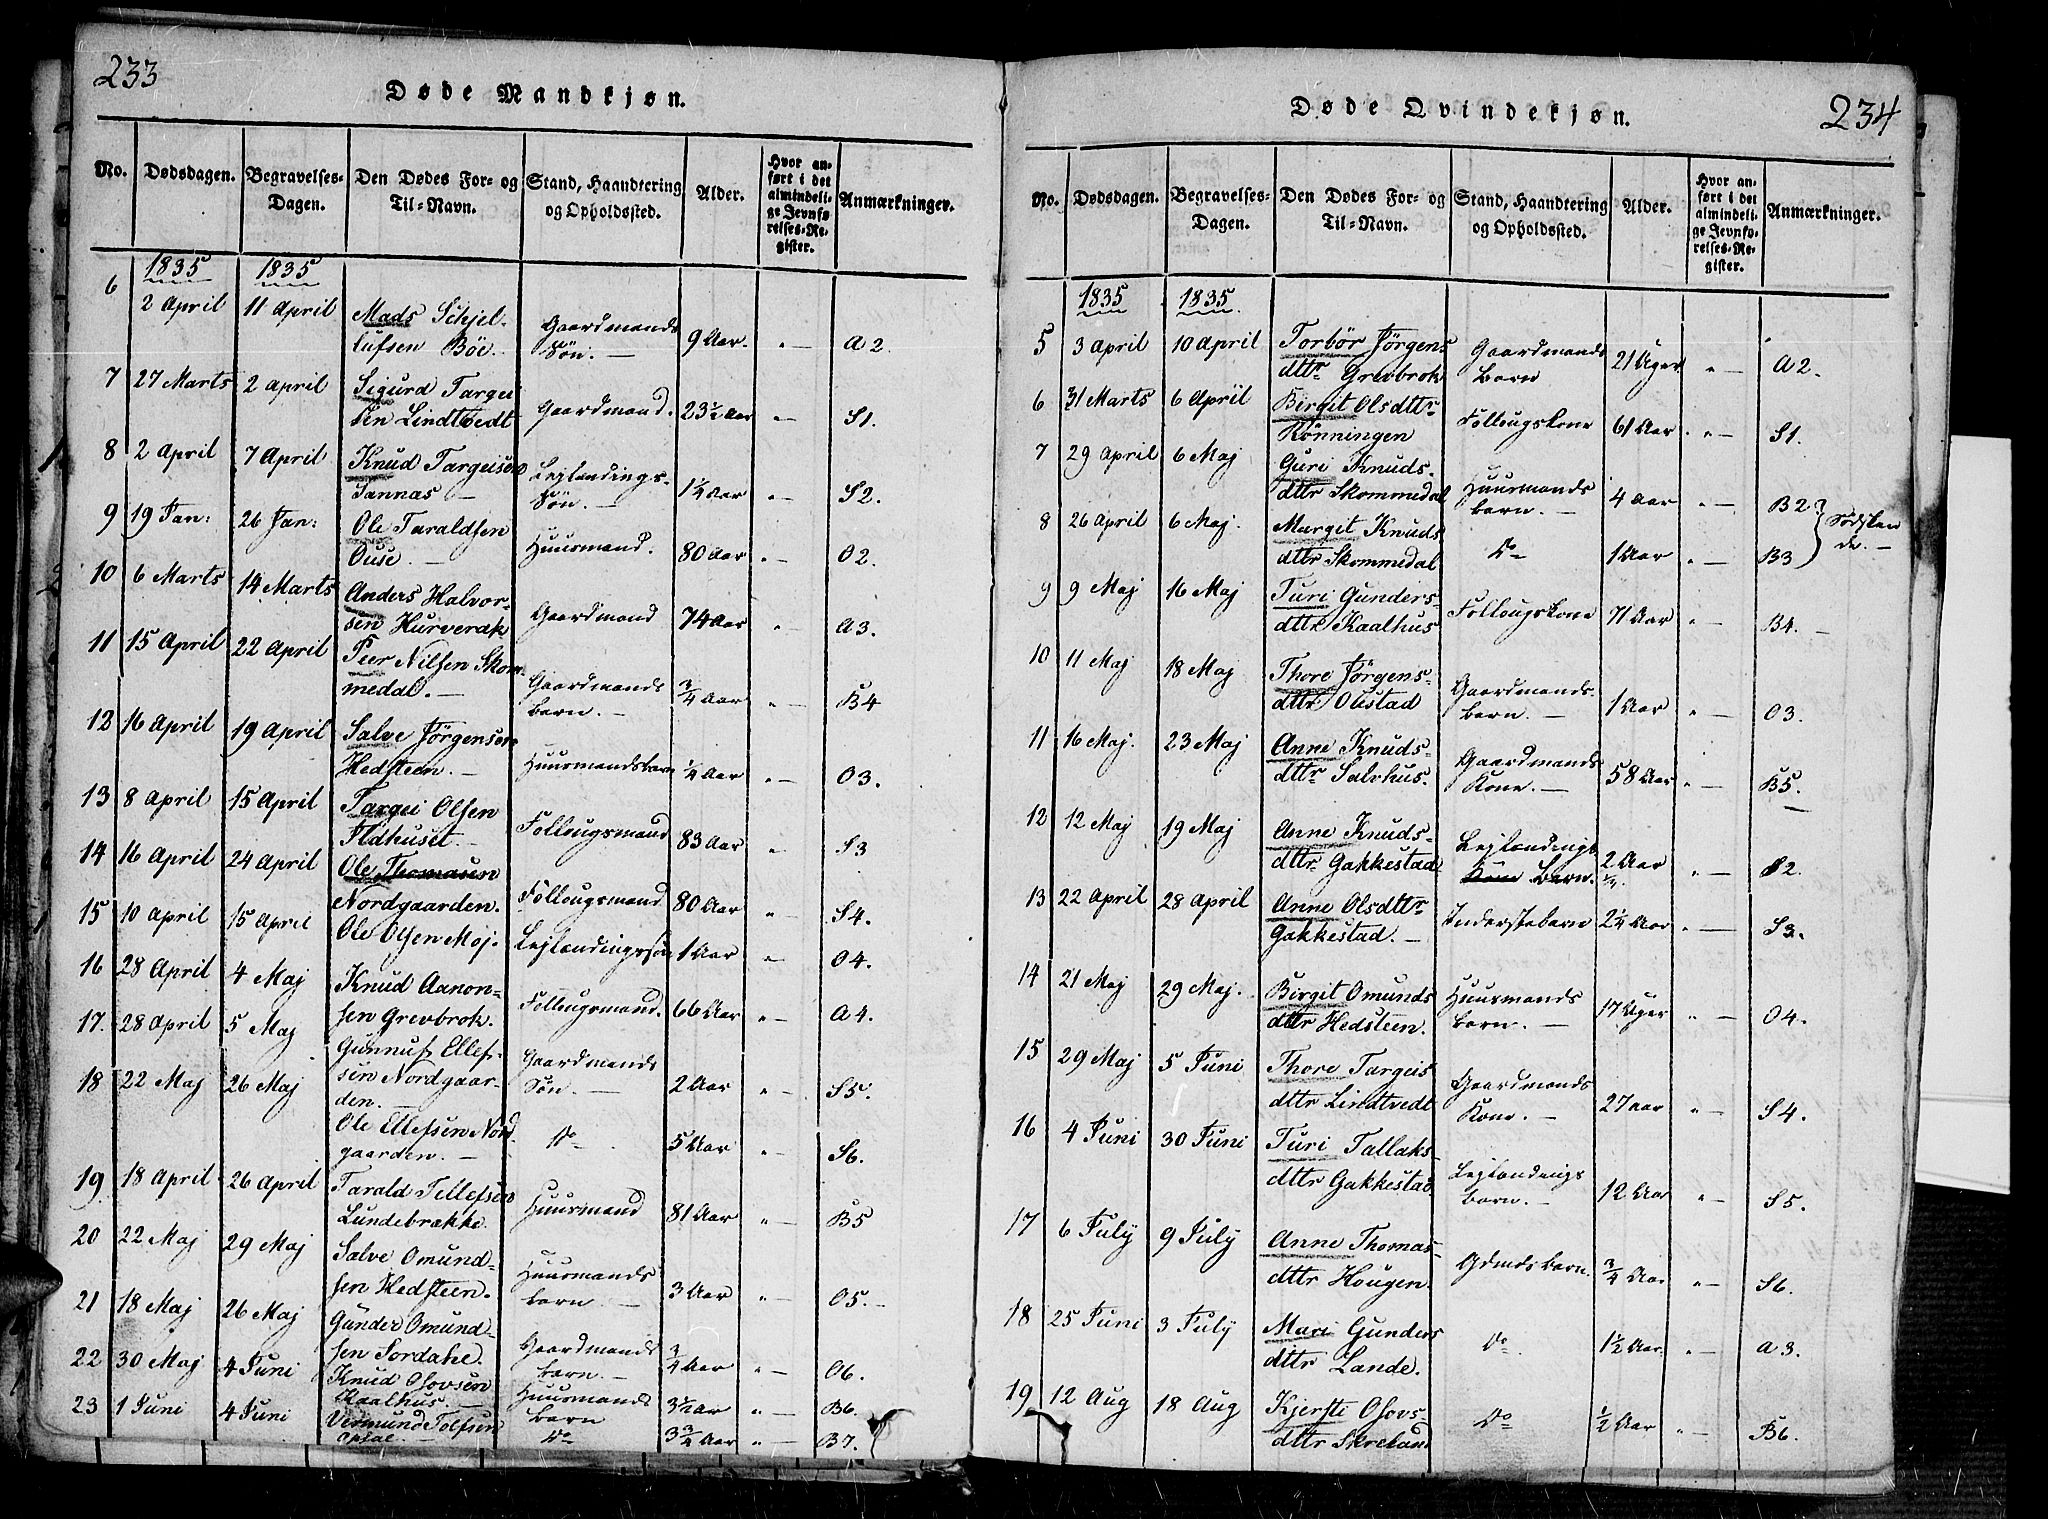 233
Døde Mandkjøn.
No. Dødsdagen. Begravelses-Dagen. Den Dødes For- og Til-Navn. Stand, Haandtering og Opholdssted. Alder. Hvor anført i det almindelige Jevnførelses-Register. Anmærkninger.
1835 1835
6 2 April 11 April Mads Schjel-
lufsen Böe. Gaardmands Sön. 9 Aar. " A2.
7 27 Marts 2 April Sigurd Targei
sen Lindtvedt Gaardmand. 23½ Aar " S1.
8 2 April 7 April Knud Targeisen
Sannas Lejlændings-Sön. 1¼ Aar " S2.
9 19 Jan: 26 Jan: Ole Taraldsen
Ouse. Huusmand. 80 Aar " O2.
10 6 Marts 14 Marts Anders Halvor-
sen Hurverak Gaardmand 74 Aar " A3.
11 15 April 22 April Peer Nilsen Skom-
medal. Gaardmands barn. ¾ Aar " B4
12 16 April 19 April Salve Jörgensen
Hedsteen. Huusmandsbarn ¼ Aar " O3.
13 8 April 15 April Targei Olsen
Ildhuset. Follougsmand 83 Aar " S3
14 16 April 24 April Ole Thomasen
Nordgaarden. Follougsmand 80 Aar " S4.
15 10 April 15 April Ole Olsen Moj. Lejlændingssön 1 Aar " O4.
16 28 April 4 Maj Knud Aanon-
sen Grevbrok. Follougsmand. 66 Aar " A4.
17. 28 April 5 Maj Gunnuf Ellef-
sen Nordgaar-
den. Gaardmands Sön. 2 Aar " S5.
18 22 Maj 26 Maj Ole Ellefsen Nord
gaarden. Do 5 Aar " S6.
19 18 April 26 April Tarald Tellefsen
Lundebrække. Huusmand 81 Aar " B5
20 22 Maj 29 Maj Salve Omund-
sen Hedsteen. Huusmands barn. 3 Aar " O5.
21 18 Maj 26 Maj Gunder Omund-
sen Sordahe. Gaardmands barn. ¾ Aar " O6.
22 30 Maj 4 Juni Knud Osovsen
Kaalhus. Huusmands barn 3½ Aar " B6.
23 1 Juni 4 Juni Vermund Tolfsen
Do 3¾ Aar " B7.
234
Døde Qvindekjøn.
No. Dødsdagen. Begravelses-Dagen. Den Dødes For- og Til-Navn. Stand, Haandtering og Opholdssted. Alder. Hvor anført i det almindelige Jevnførelses-Register. Anmærkninger.
1835 1835.
5 3 April 10 April Torbör Jörgens
dttr Grevbrok Gaardmands barn 21 Uger " A2.
6 31 Marts 6 April Birgit Olsdttr
Rönningen Follougskone 61 Aar " S1.
7 29 April 6 Maj Guri Knuds-
dttr Skommedal Huusmands barn. 4 Aar " B2 } Södsken
8 26 April 6 Maj. Margit Knuds
dttr Skommedal Do 1 Aar " B3 } de.
9 9 Maj 16 Maj Turi Gunders-
dttr Kaalhus Follougskone 71 Aar " B4.
10 11 Maj 18 Maj Thore Jörgens-
dttr Obstad Gaardmands barn. 1 Aar " O3.
11 16 Maj. 23 Maj Anne Knuds-
dttr Salvhus. Gaardmands Kone. 58 Aar " B5.
12 12 Maj 19 Maj Anne Knuds-
dttr Gakkestad Lejlændings Kone barn. 2 Aar " S2.
13 22 April 28 April Anne Olsdttr
Gakkestad. Inderstebarn 2¼ Aar " S3.
14 21 Maj 29 Maj. Birgit Omunds
dttr Hedsteen. Huusmands barn. 17 Uger " O4.
15 29 Maj 5 Juni Thore Targeis
dttr Lindtvedt Gaardmands Kone. 27 Aar " S4.
16 4 Juni 30 Juni Turi Tallaks-
dttr Gakkestad. Lejlændings barn. 12 Aar " S5.
17 6 July 9 July Anne Thomas-
dttr Hougen. Gdmdsbarn. ¾ Aar " S6.
18 25 Juni 3 July Mari Gunders
dttr Lande. Do. 1½ Aar. " A3.
19 12 Aug 18 Aug Kjersti Osovs-
dttr Skreland Do ½ Aar " B6.